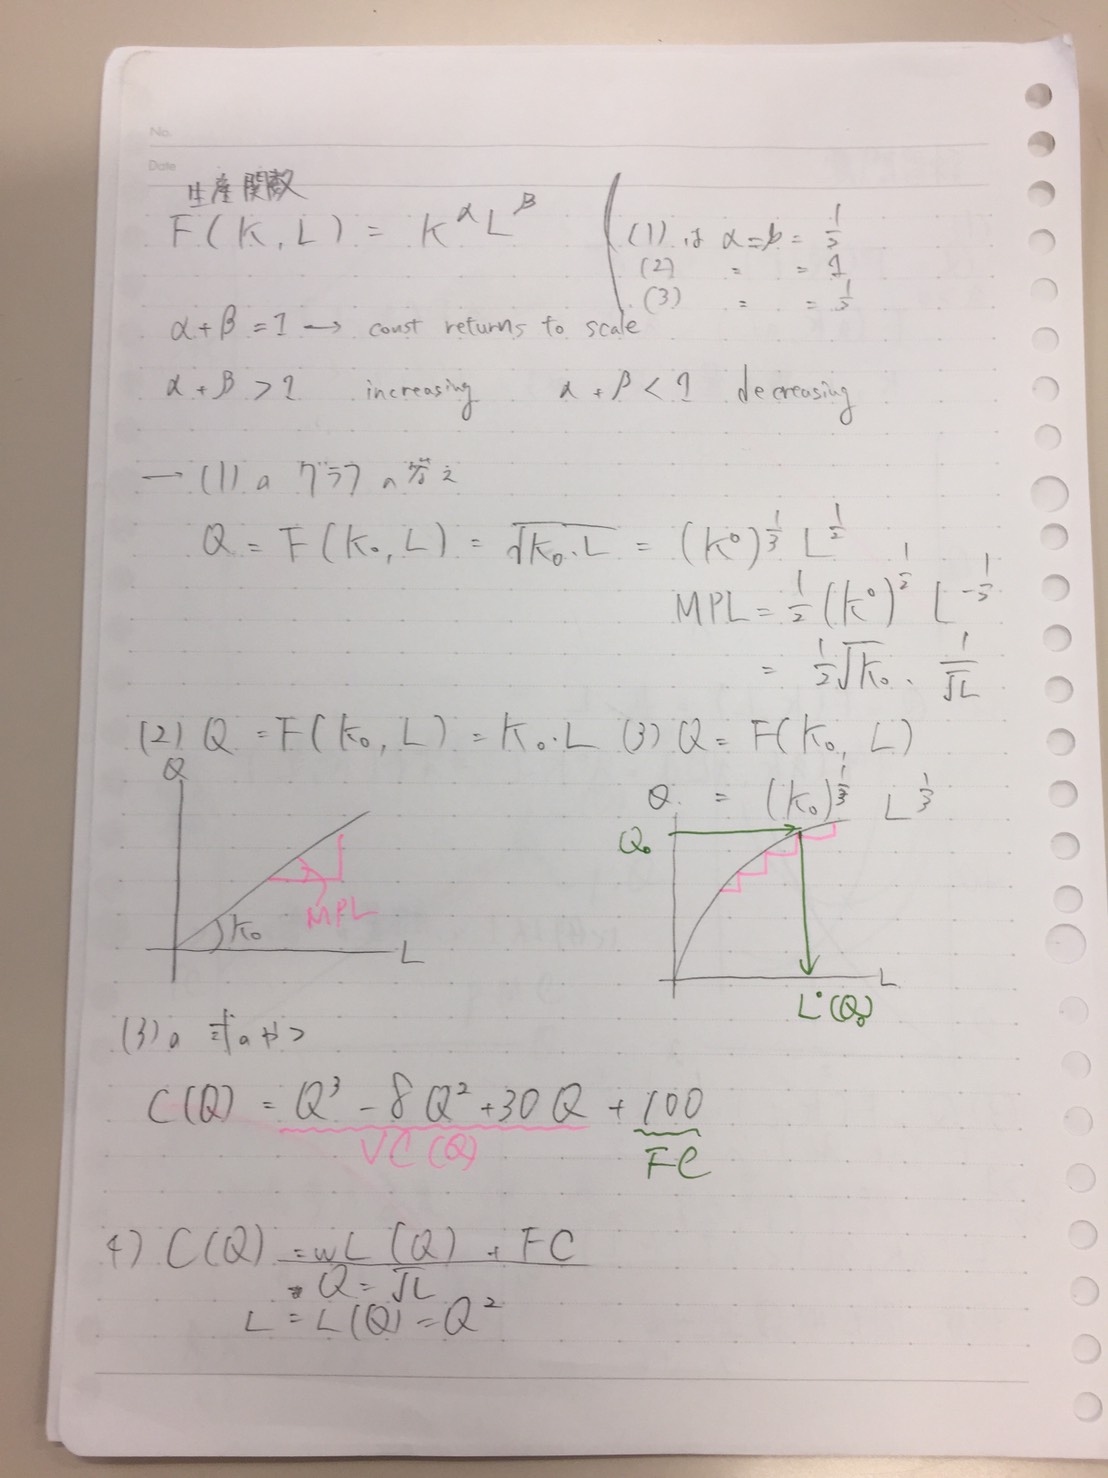 No.
Date
生産関数
F(K, L) = K^α L^β
(1) if α=β= 1/2
(2) 〃 〃 = 1
(3) 〃 〃 = 1/3
α+β=1 → const returns to scale
α+β>1 increasing α+β<1 decreasing
→ (1)の グラフの
Q = F(K₀, L) = √K₀·L = (K⁰)^½ L^½
MPL = 1/2 (K⁰)^½ L^-½
= 1/2 √K₀ · 1/√L
(2) Q = F(K₀, L) = K₀·L (3) Q = F(K₀, L)
= (K₀)^⅓ L^⅓
Q
MPL
K₀
L
Q
Q₀
L
L*(Q₀)
(3)の 式の
C(Q) = Q³ - 8Q² + 30Q + 100
VC(Q) FC
4) C(Q) = wL(Q) + FC
Q = √L
L = L(Q) = Q²